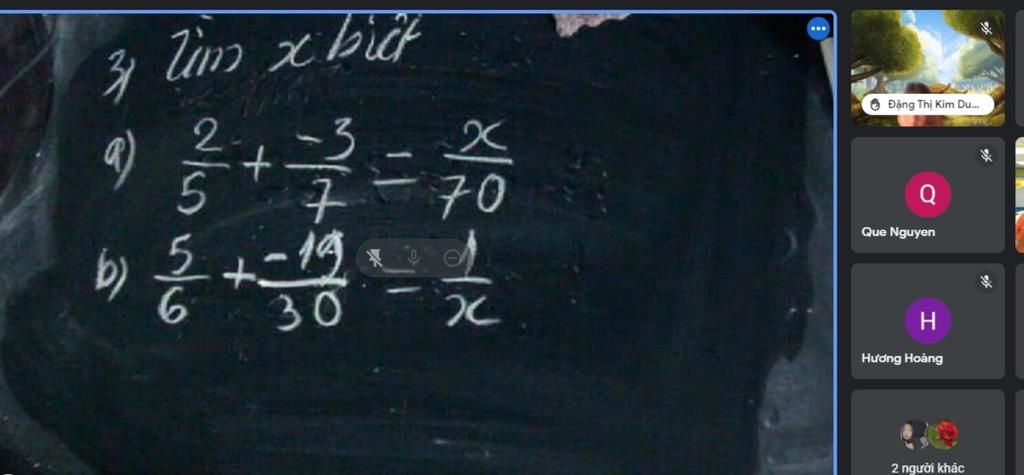 3) Tìm x biết
a) 2/5 + -3/7 = x/70
b) 5/6 + -19/30 = 1/x
Đặng Thị Kim Du...
Q
Que Nguyen
H
Hương Hoàng
2 người khác